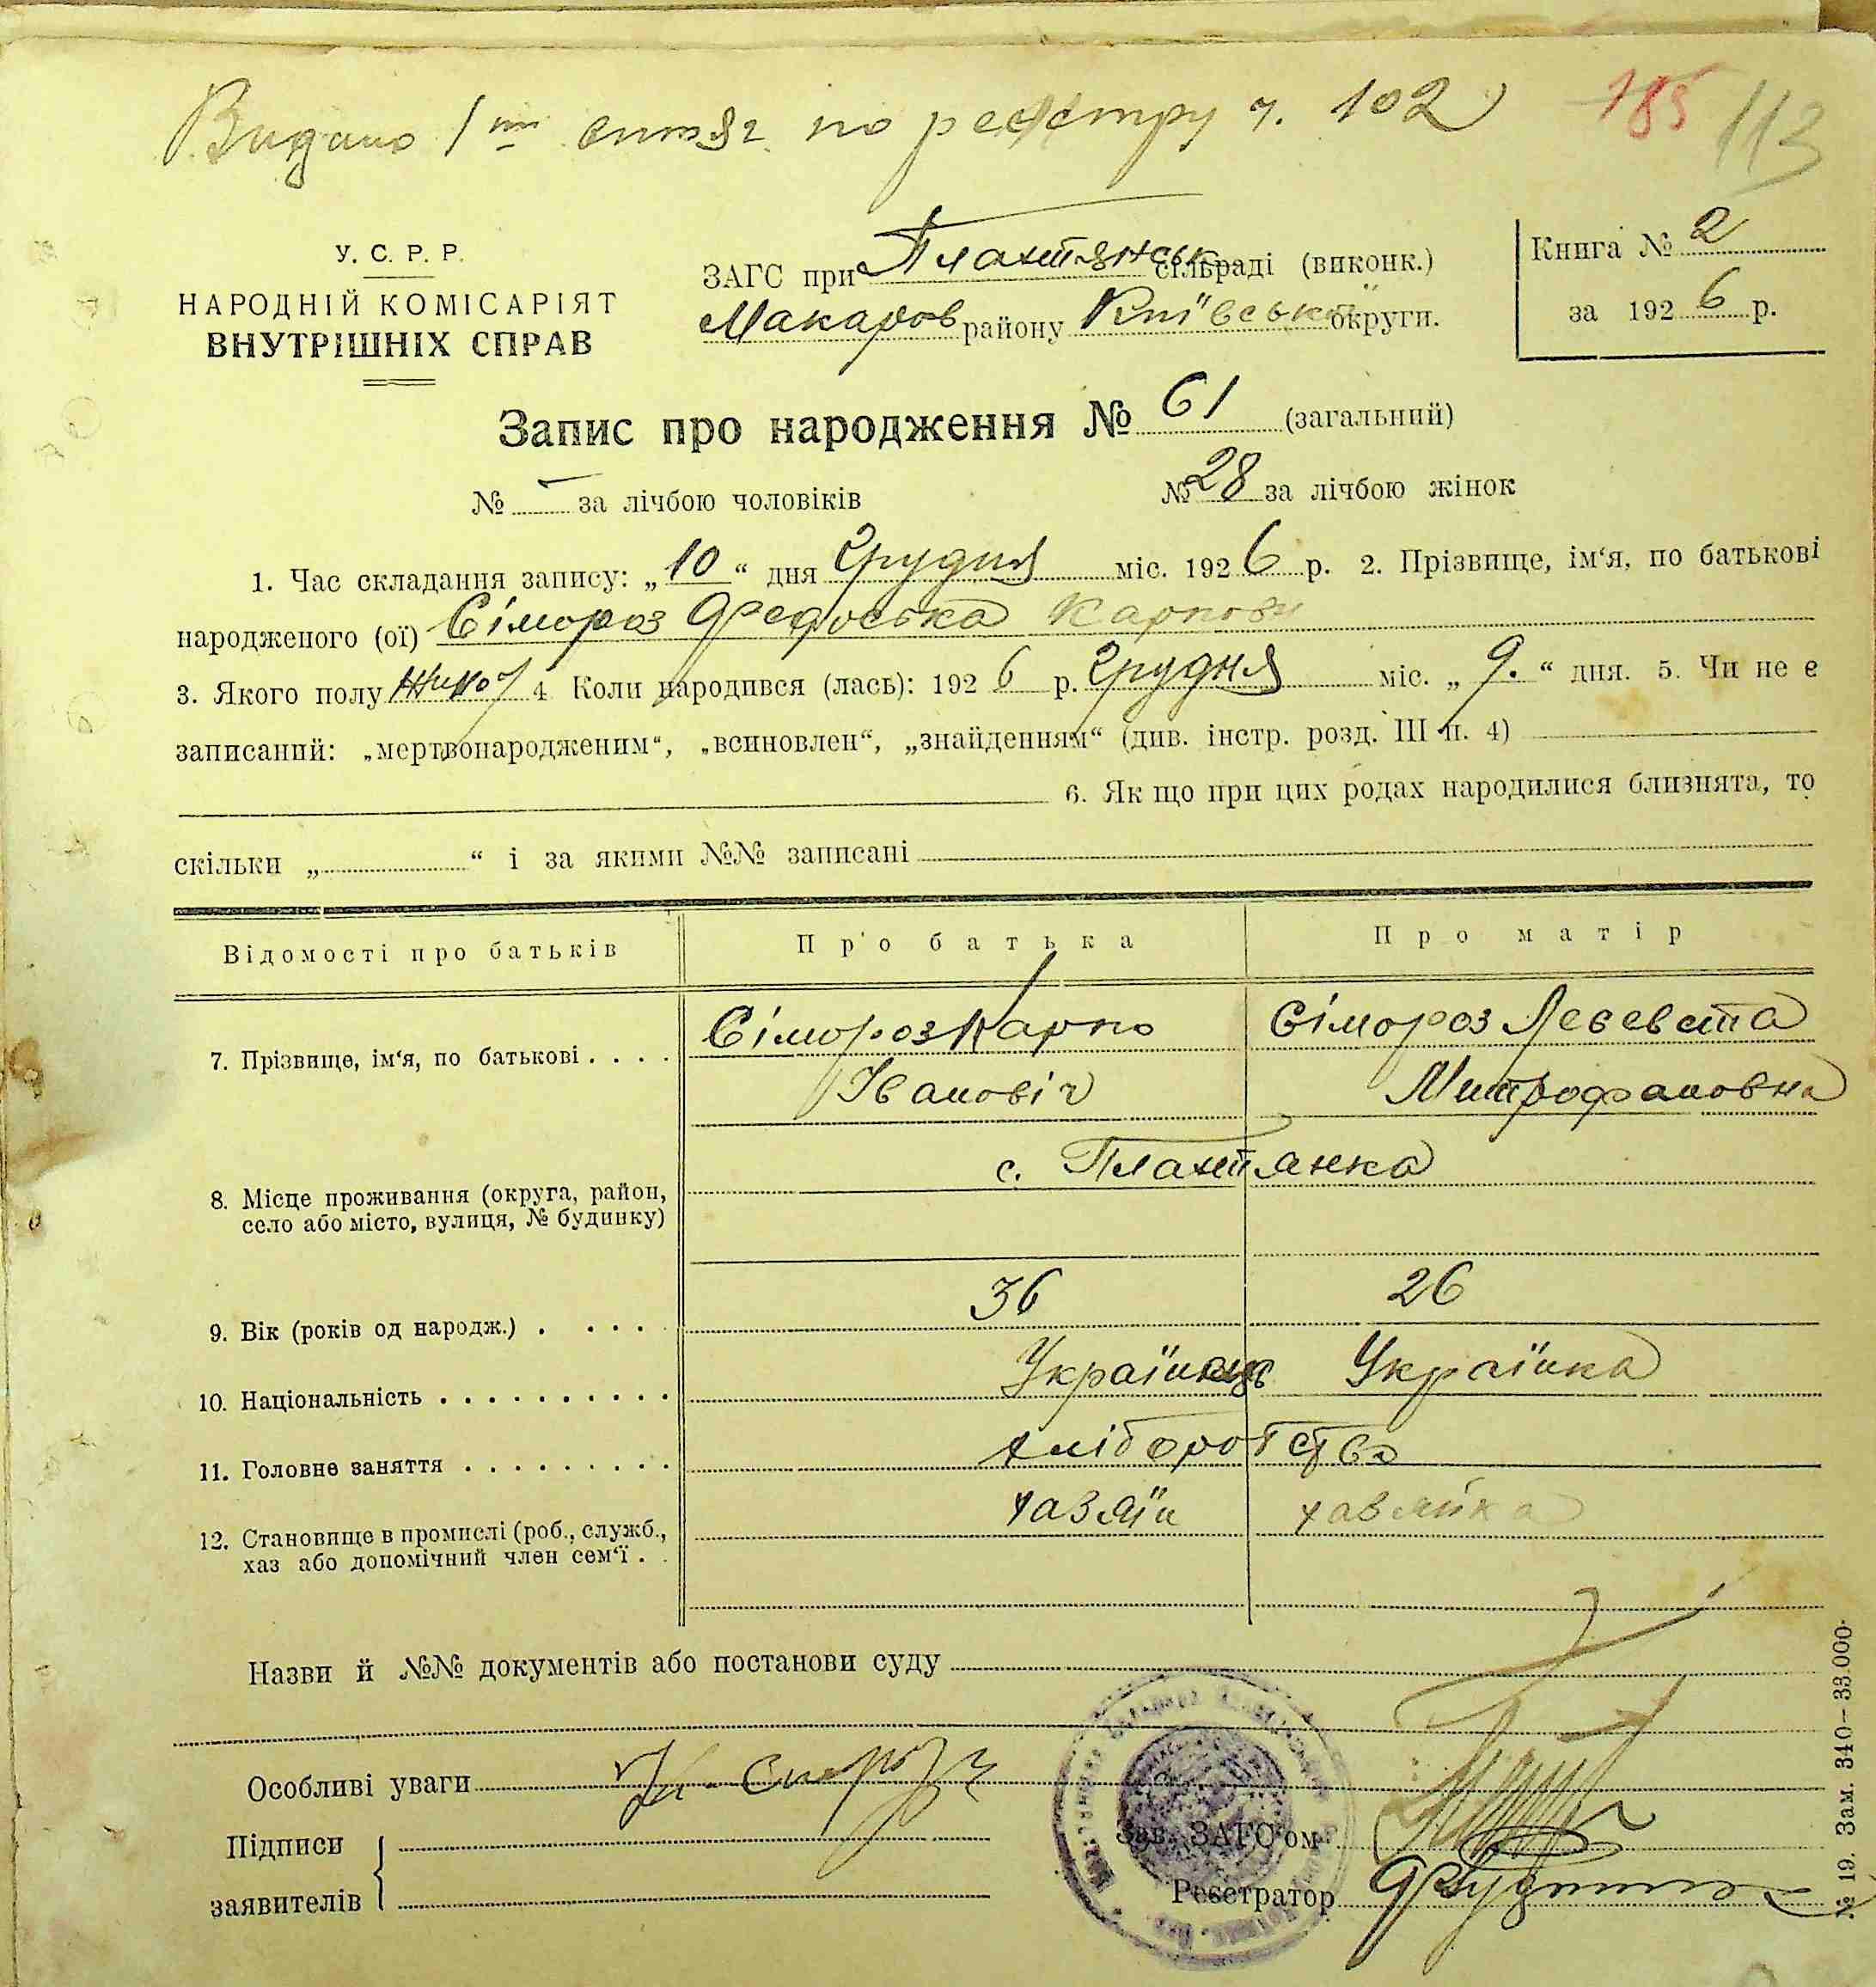 Видано 1 по реєстру ч. 102 185 113
У. С. Р. Р.
НАРОДНІЙ КОМІСАРІЯТ
ВНУТРІШНІХ СПРАВ
ЗАГС при Плахтянськ сільраді (виконк.)
Макаров району Київської округи.
Книга № 2
за 1926 р.
Запис про народження № 61 (загальний)
№ - за лічбою чоловіків № 28 за лічбою жінок
1. Час складання запису: „10“ дня Грудня міс. 1926 р. 2. Прізвище, ім‘я, по батькові
народженого (ої) Сімороз Федоська Карповн
3. Якого полу жіноч 4 Коли народився (лась): 1926 р. Грудня міс. „9.“ дня. 5. Чи не є
записаний: „мертвонародженим“, „всиновлен“, „знайденням“ (див. інстр. розд. III п. 4)
6. Як що при цих родах народилися близнята, то
скільки „ “ і за якими №№ записані
Відомості про батьків Про батька Про матір
7. Прізвище, ім‘я, по батькові . . . . Сімороз Карпо Сімороз Лесевета
Івановіч Митрофановна
с. Плахтянка
8. Місце проживання (округа, район,
село або місто, вулиця, № будинку)
9. Вік (років од народж.) . . . . 36 26
10. Національність . . . . . . . . . . Українець Українка
11. Головне заняття . . . . . . . . . хліборобство
12. Становище в промислі (роб., служб.,
хаз або допомічний член сем‘ї . . хазяїн хазяйка
Назви й №№ документів або постанови суду
Особливі уваги
Підписи
заявителів
Зав. ЗАГС‘ом
Реєстратор
№ 19. Зам. 340–33.000